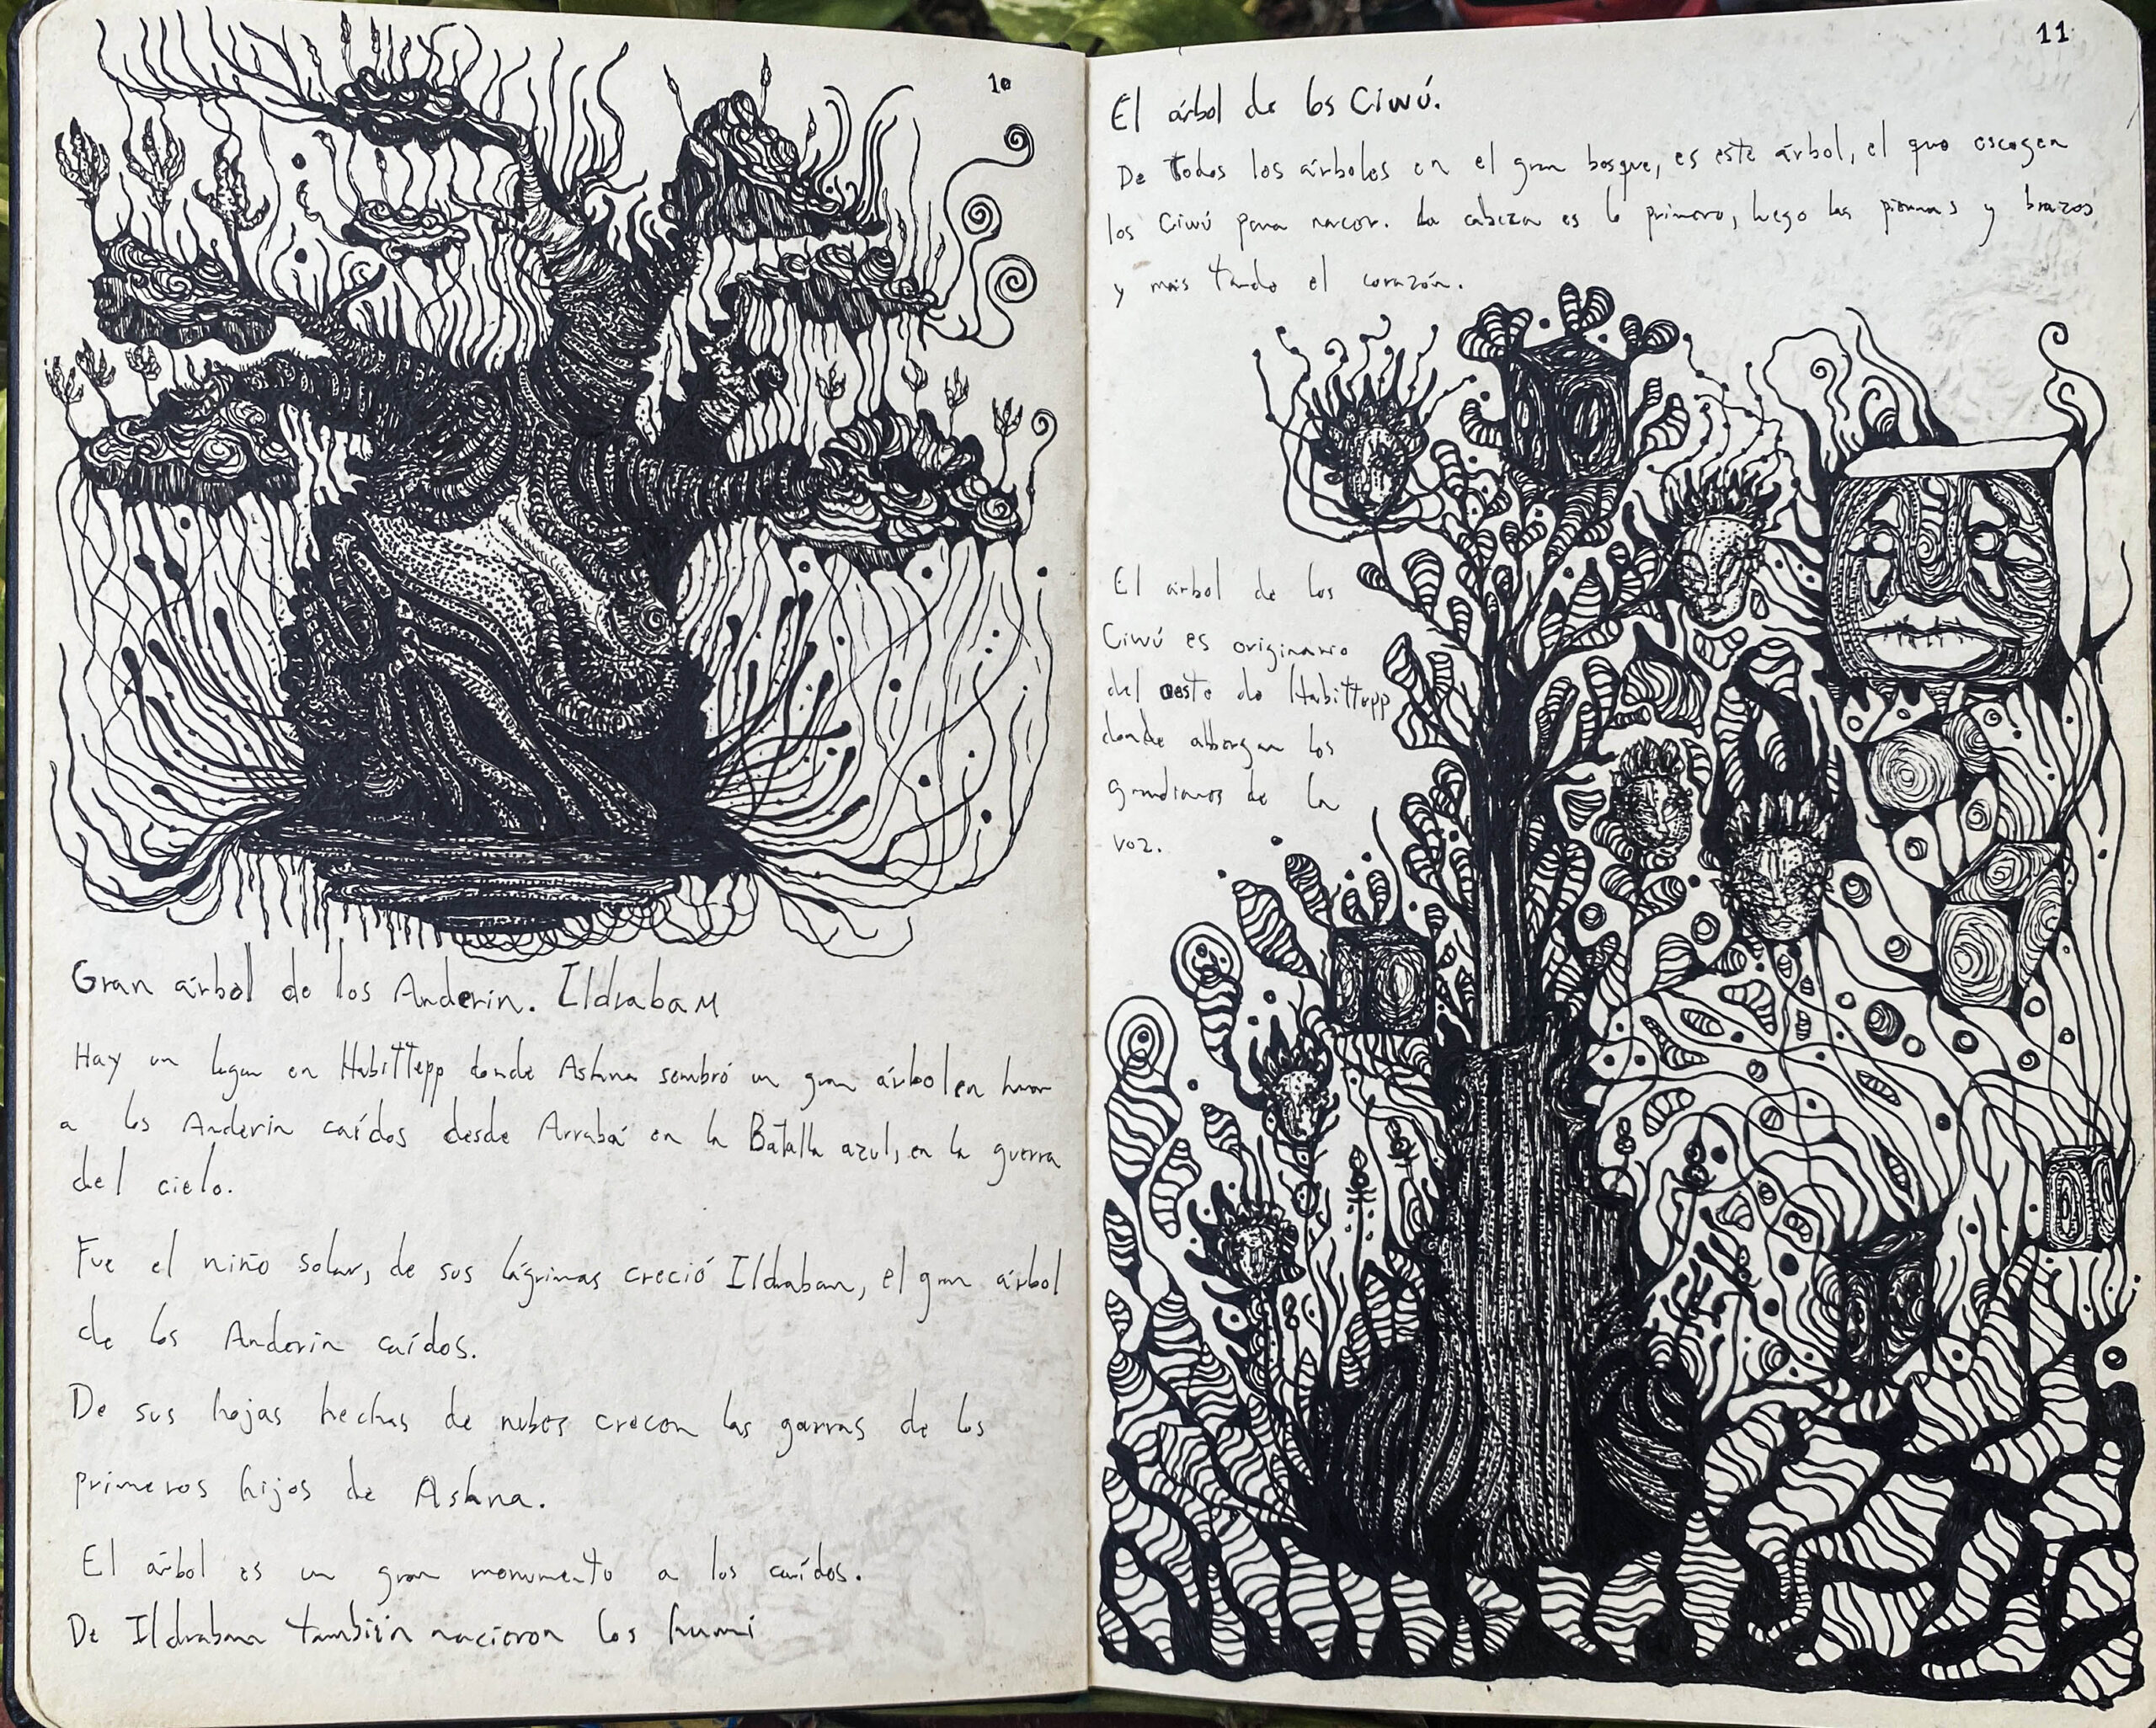 10
Gran árbol de los Anderin. Ildrabam
Hay un lugar en Habittepp donde Ashna sembró un gran árbol en honor
a los Anderin caídos desde Arrabá en la Batalla azul, en la guerra
del cielo.
Fue el niño solar, de sus lágrimas creció Ildraban, el gran árbol
de los Anderin caídos.
De sus hojas hechas de nubes crecen las garras de los
primeros hijos de Ashna.
El árbol es un gran monumento a los caídos.
De Ildraban también nacieron los humi
11
El árbol de los Ciwú.
De todos los árboles en el gran bosque, es este árbol, el que escogen
los Ciwú para nacer. La cabeza es lo primero, luego las piernas y brazos
y más tarde el corazón.
El árbol de los
Ciwú es originario
del oeste de Habittepp
donde albergan los
guardianes de la
voz.